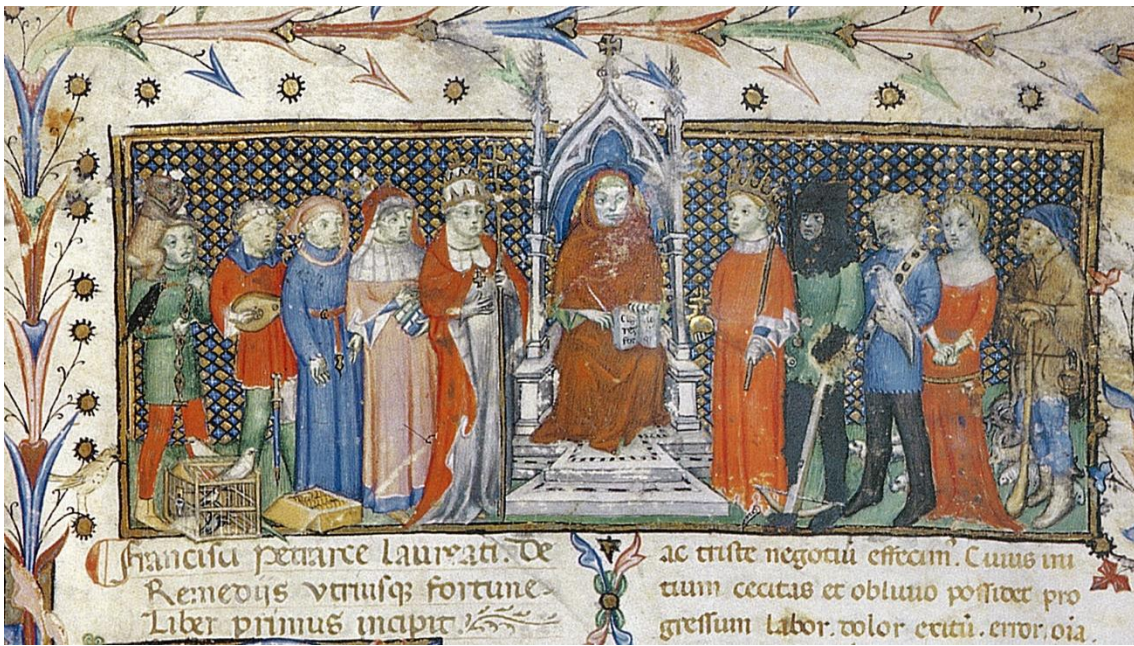 Francisci petrarce laureati. De
Remedijs vtriusq; fortune.
Liber primus incipit.
ac triste negotiū effecim⁹. Cuius ini
tium cecitas et obliuio possidet pro
gressum labor. dolor exitū. error. oīa.